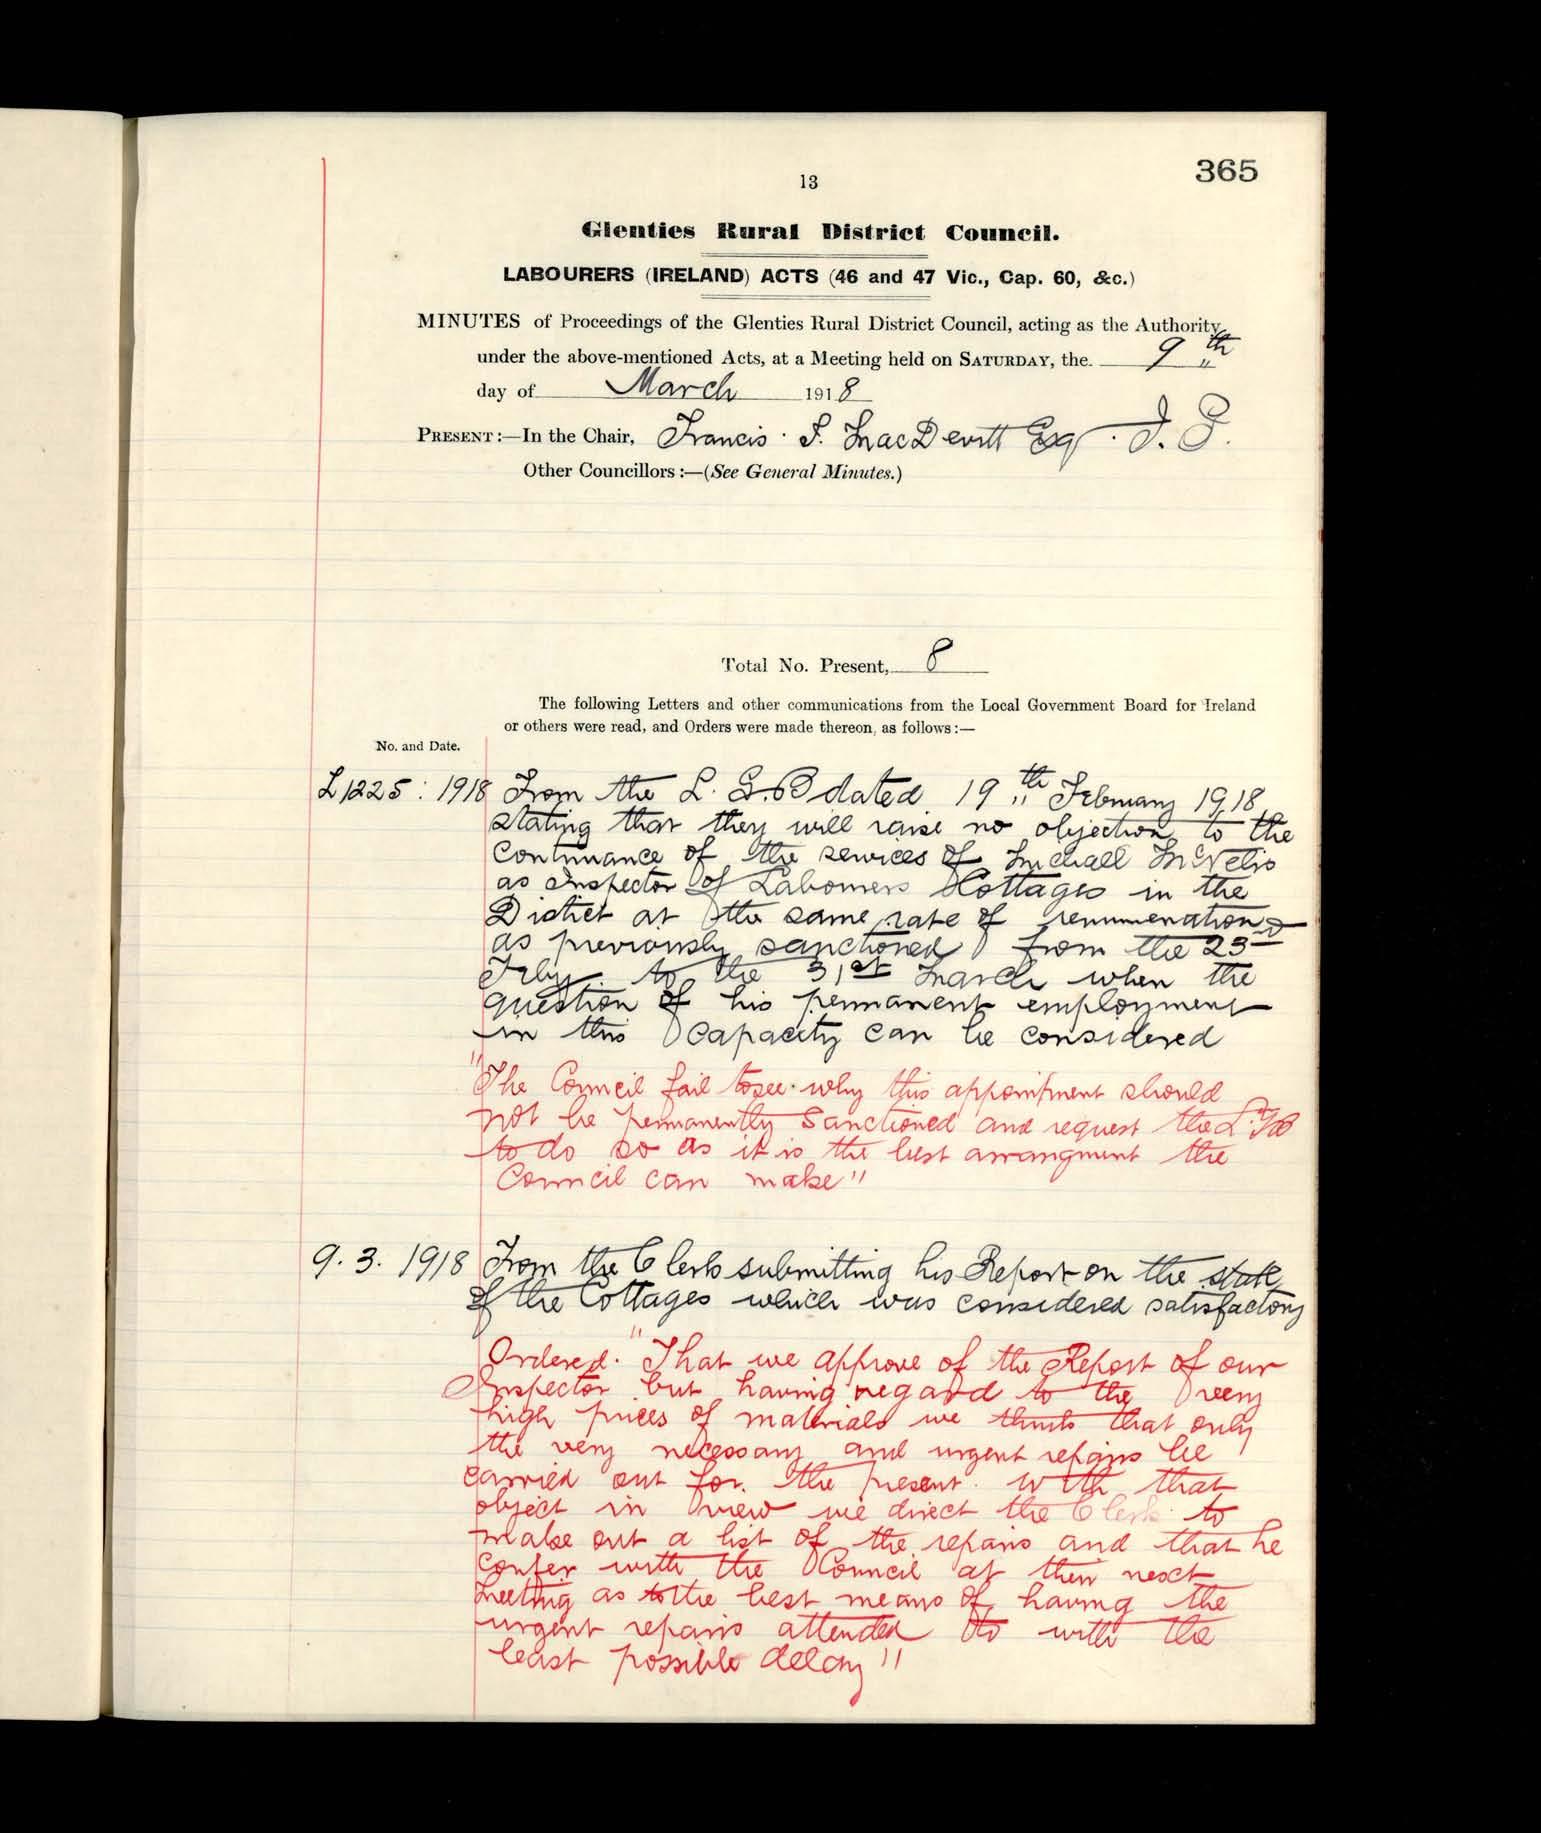 365
13
Glenties Rural District Council.
LABOURERS (IRELAND) ACTS (46 and 47 Vic., Cap. 60, &c.)
MINUTES of Proceedings of the Glenties Rural District Council, acting as the Authority
under the above-mentioned Acts, at a Meeting held on SATURDAY, the 9th
day of March 1918
PRESENT:—In the Chair, Francis MacDevitt Esq. J. P.
Other Councillors:—(See General Minutes.)
Total No. Present, 8
The following Letters and other communications from the Local Government Board for Ireland
or others were read, and Orders were made thereon, as follows:—
No. and Date.
L1225: 1918 From the L. G. B dated 19th February 1918
stating that they will raise no objection to the
continuance of the services of Michael McNelis
as Inspector of Labourers Cottages in the
District at the same rate of remuneration
as previously sanctioned from the 23rd
Feby. to the 31st March when the
question of his permanent employment
in this capacity can be considered
"The Council fail to see why this appointment should
not be permanently sanctioned and request the L.GB
to do so as it is the best arrangment the
Council can make"
9. 3. 1918 From the Clerk submitting his Report on the state
of the Cottages which was considered satisfactory
Ordered. "That we approve of the Report of our
Inspector but having regard to the very
high prices of materials we think that only
the very necessary and urgent repairs be
carried out for the present. With that
object in view we direct the Clerk to
make out a list of the repairs and that he
confer with the Council at their next
meeting as to the best means of having the
urgent repairs attended to with the
least possible delay"